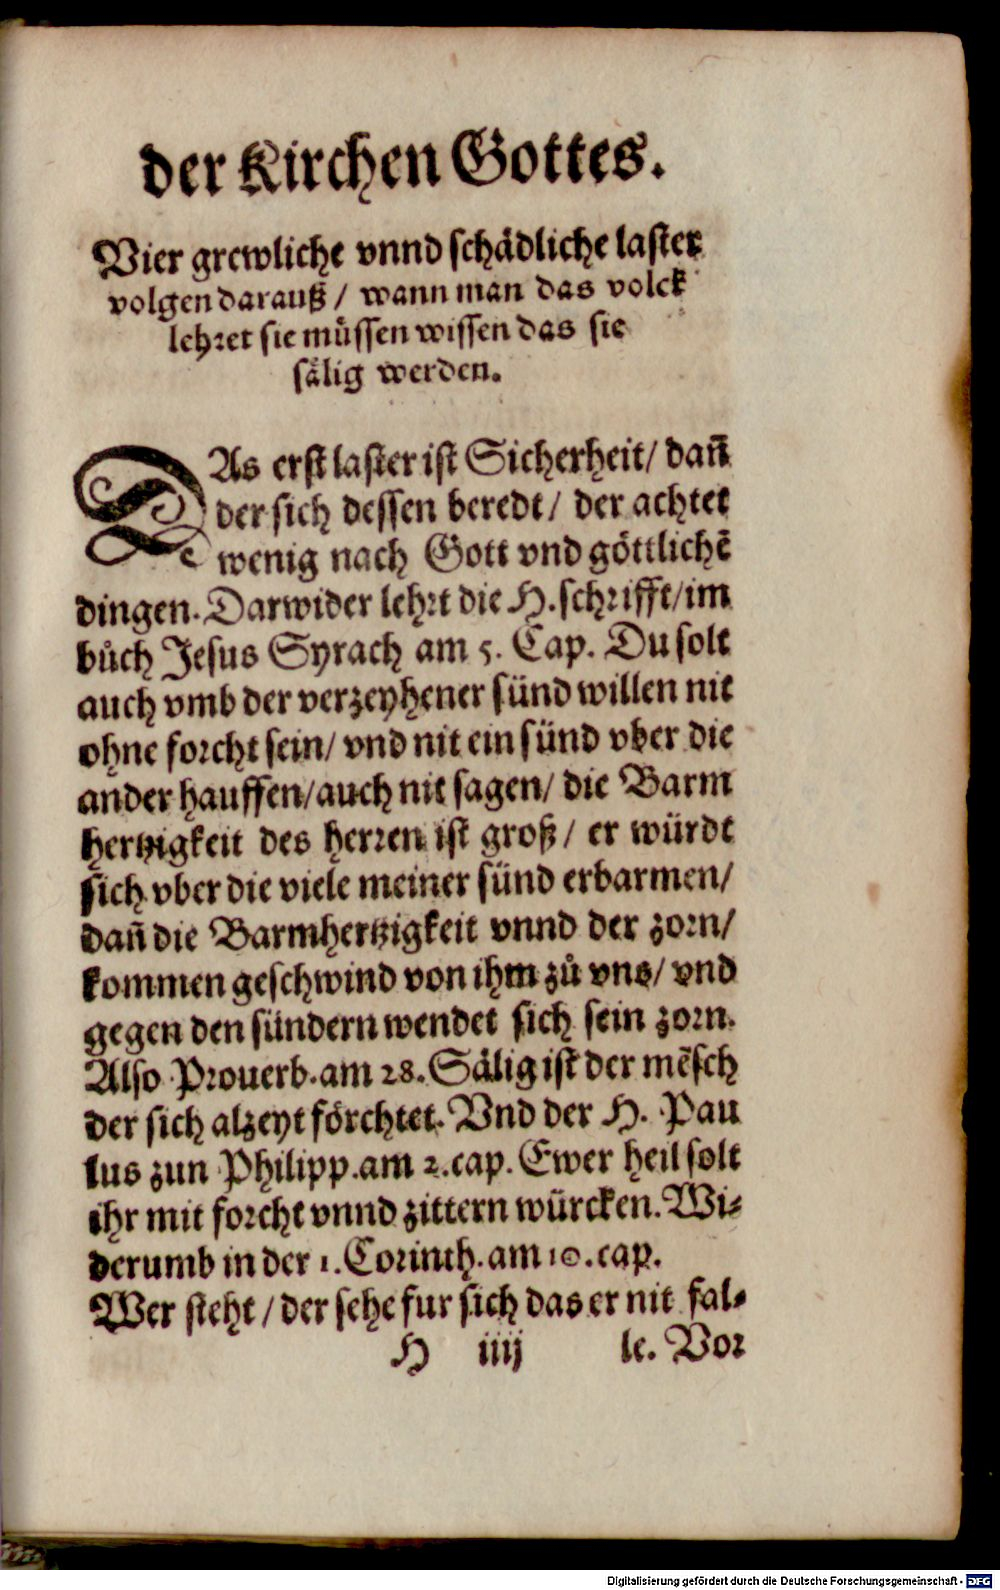 der Kirchen Gottes.
Vier grewliche vnnd schädliche laster
volgen darauß / wann man das volck
lehret sie müssen wissen das sie
sälig werden.
DAs erst laster ist Sicherheit/ dañ
der sich dessen beredt / der achtet
wenig nach Gott vnd göttlichẽ
dingen. Darwider lehrt die H. schrifft/im
bůch Jesus Syrach am 5. Cap. Du solt
auch vmb der verzeyhener sünd willen nit
ohne forcht sein/ vnd nit ein sünd vber die
ander hauffen/auch nit sagen/ die Barm
hertzigkeit des herren ist groß / er würdt
sich vber die viele meiner sünd erbarmen/
dañ die Barmhertzigkeit vnnd der zorn/
kommen geschwind von ihm zů vns/ vnd
gegen den sündern wendet sich sein zorn.
Also Prouerb. am 28. Sälig ist der mẽsch
der sich alzeyt förchtet. Vnd der H. Pau
lus zun Philipp. am 2. cap. Ewer heil solt
ihr mit forcht vnnd zittern würcken. Wi-
derumb in der 1. Corinth. am 10. cap.
Wer steht / der sehe fur sich das er nit fal-
H iiij le. Vor
Digitalisierung gefördert durch die Deutsche Forschungsgemeinschaft - DFG